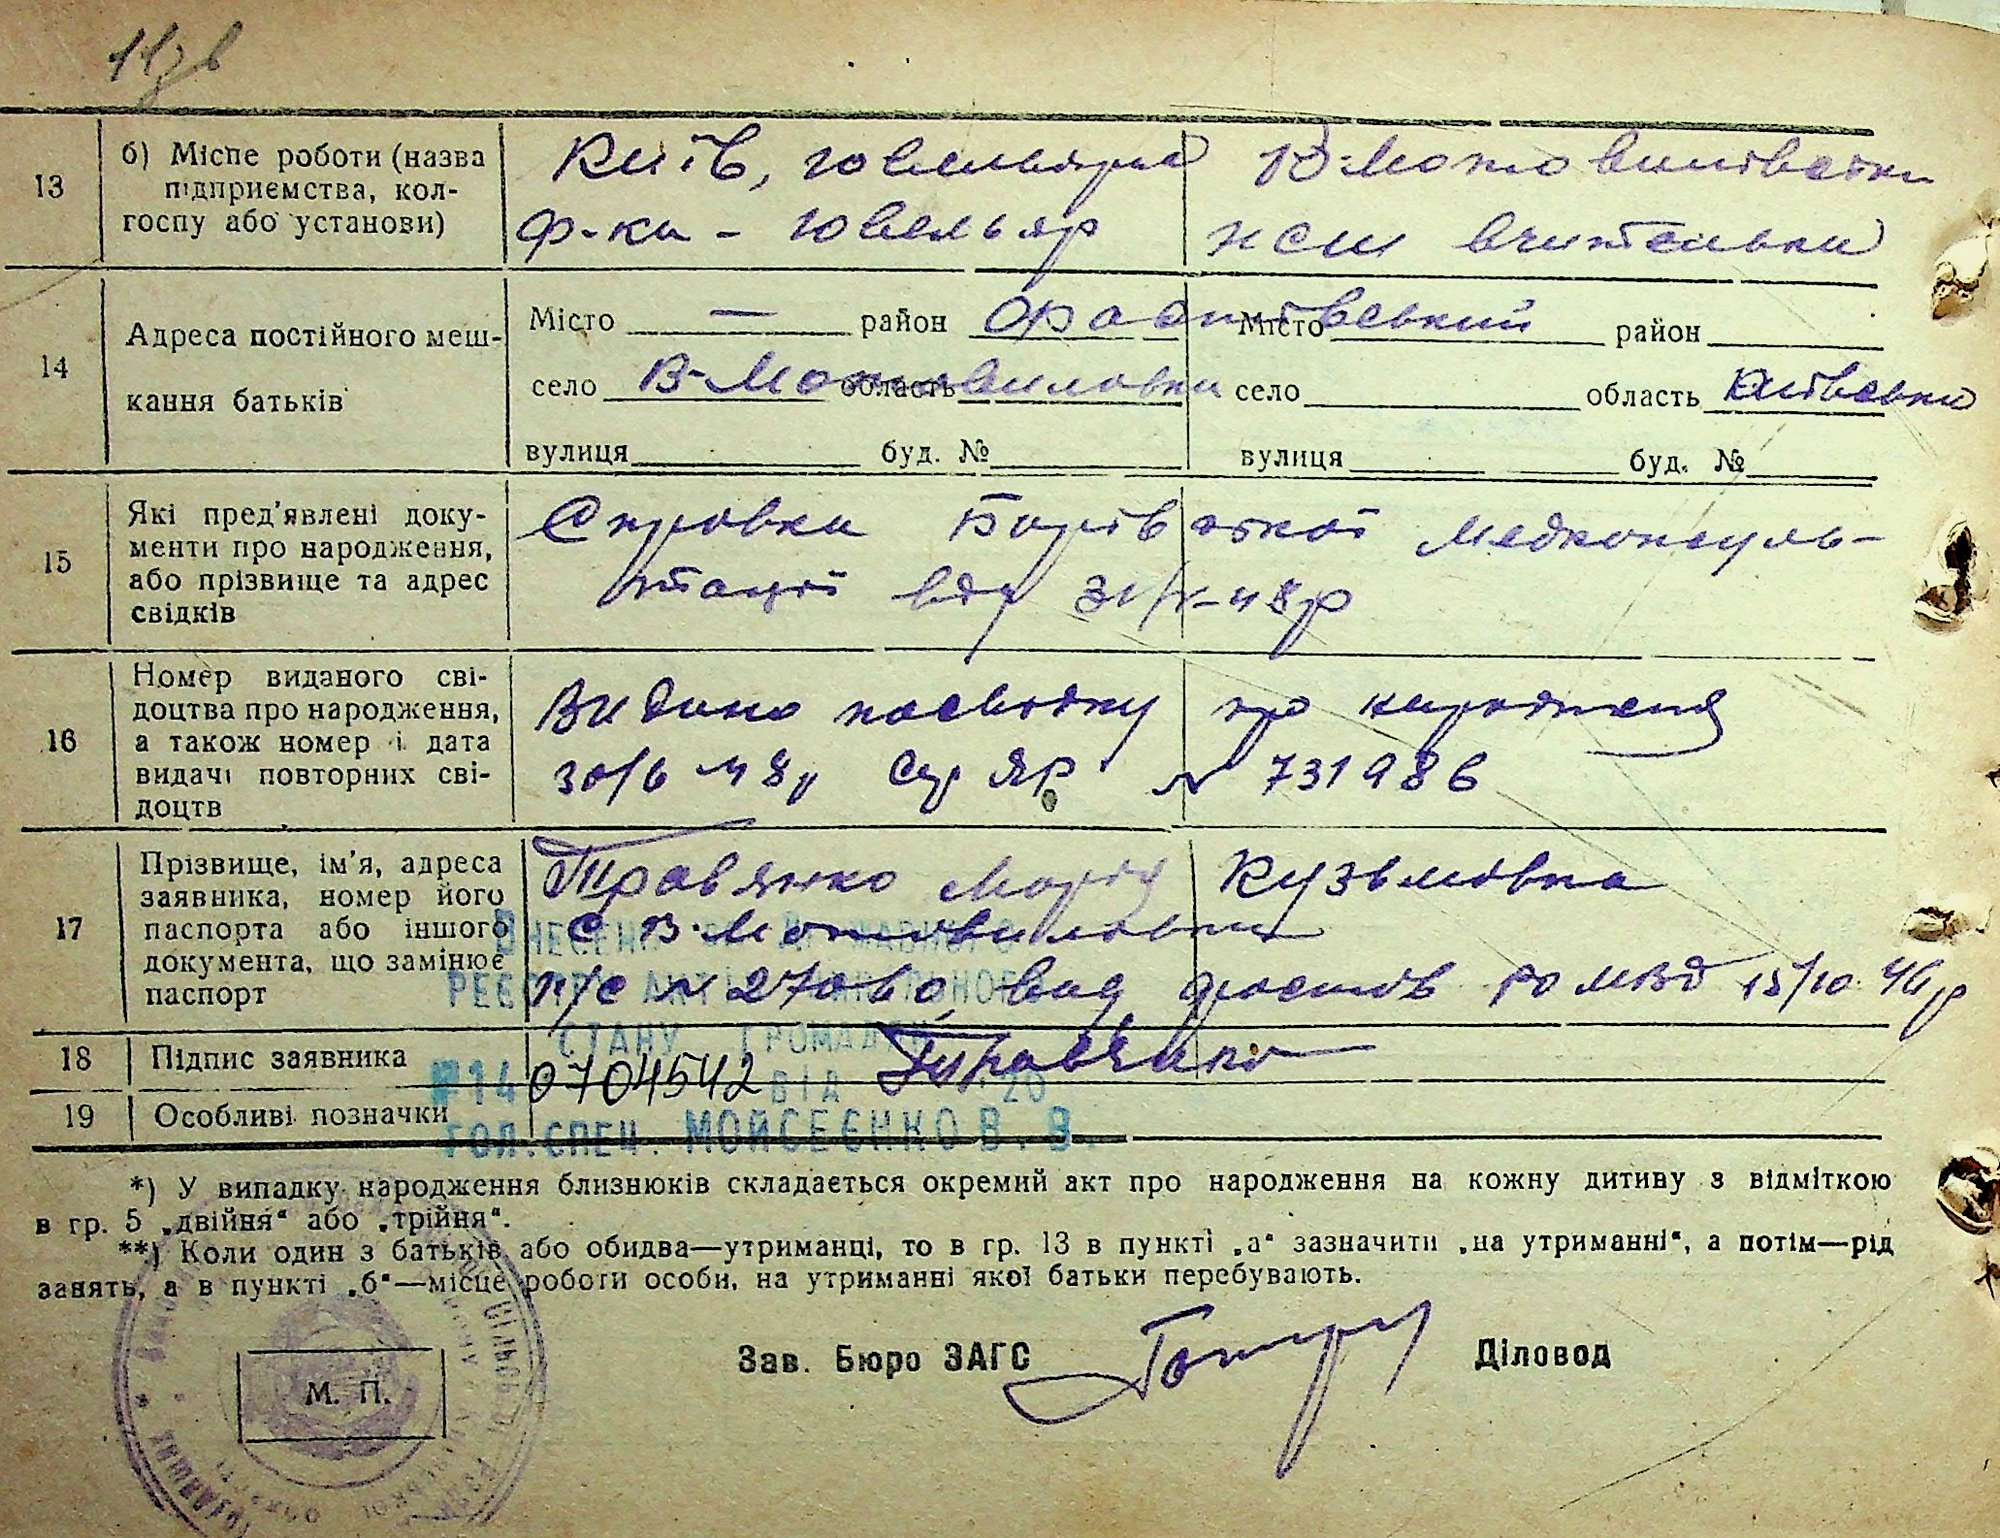 11зв
13 б) Місце роботи (назва підприємства, кол-госпу або установи)
Київ, ювелирна В-Мотовилівська
ф-ка - ювельяр НСШ вчителька
14 Адреса постійного меш-кання батьків
Місто — район Фастівський Місто район
село В-Мотовиловка область село область Київська
вулиця буд. № вулиця буд. №
15 Які пред'явлені доку-
менти про народження,
або прізвище та адрес
свідків
Справка медконсуль-
тації від 48р
16 Номер виданого сві-
доцтва про народження,
а також номер і дата
видачі повторних сві-
доцтв
Видано посвідку про народженя
30/6 48р ЯР № 731986
17 Прізвище, ім'я, адреса
заявника, номер його
паспорта або іншого
документа, що замінює
паспорт
Травянко Марія Кузьмівна
с В-Мотовиловка
п/с № вид Фастів РО МВД 15/10 46р
ВНЕСЕНО ДО ДЕРЖАВНОГО
РЕЄСТРУ АКТІВ ЦИВІЛЬНОГО
СТАНУ ГРОМАДЯН
№14 0704542 ВІД 20
ГОЛ.СПЕЦ. МОЙСЕЄНКО В.В.
18 Підпис заявника Травянко
19 Особливі позначки
*) У випадку народження близнюків складається окремий акт про народження на кожну дитиву з відміткою
в гр. 5 „двійня“ або „трійня“.
**) Коли один з батьків або обидва—утриманці, то в гр. 13 в пункті „а“ зазначити „на утриманні“, а потім—рід
занять, а в пункті „б“—місце роботи особи, на утриманні якої батьки перебувають.
Зав. Бюро ЗАГС Діловод
М. П.